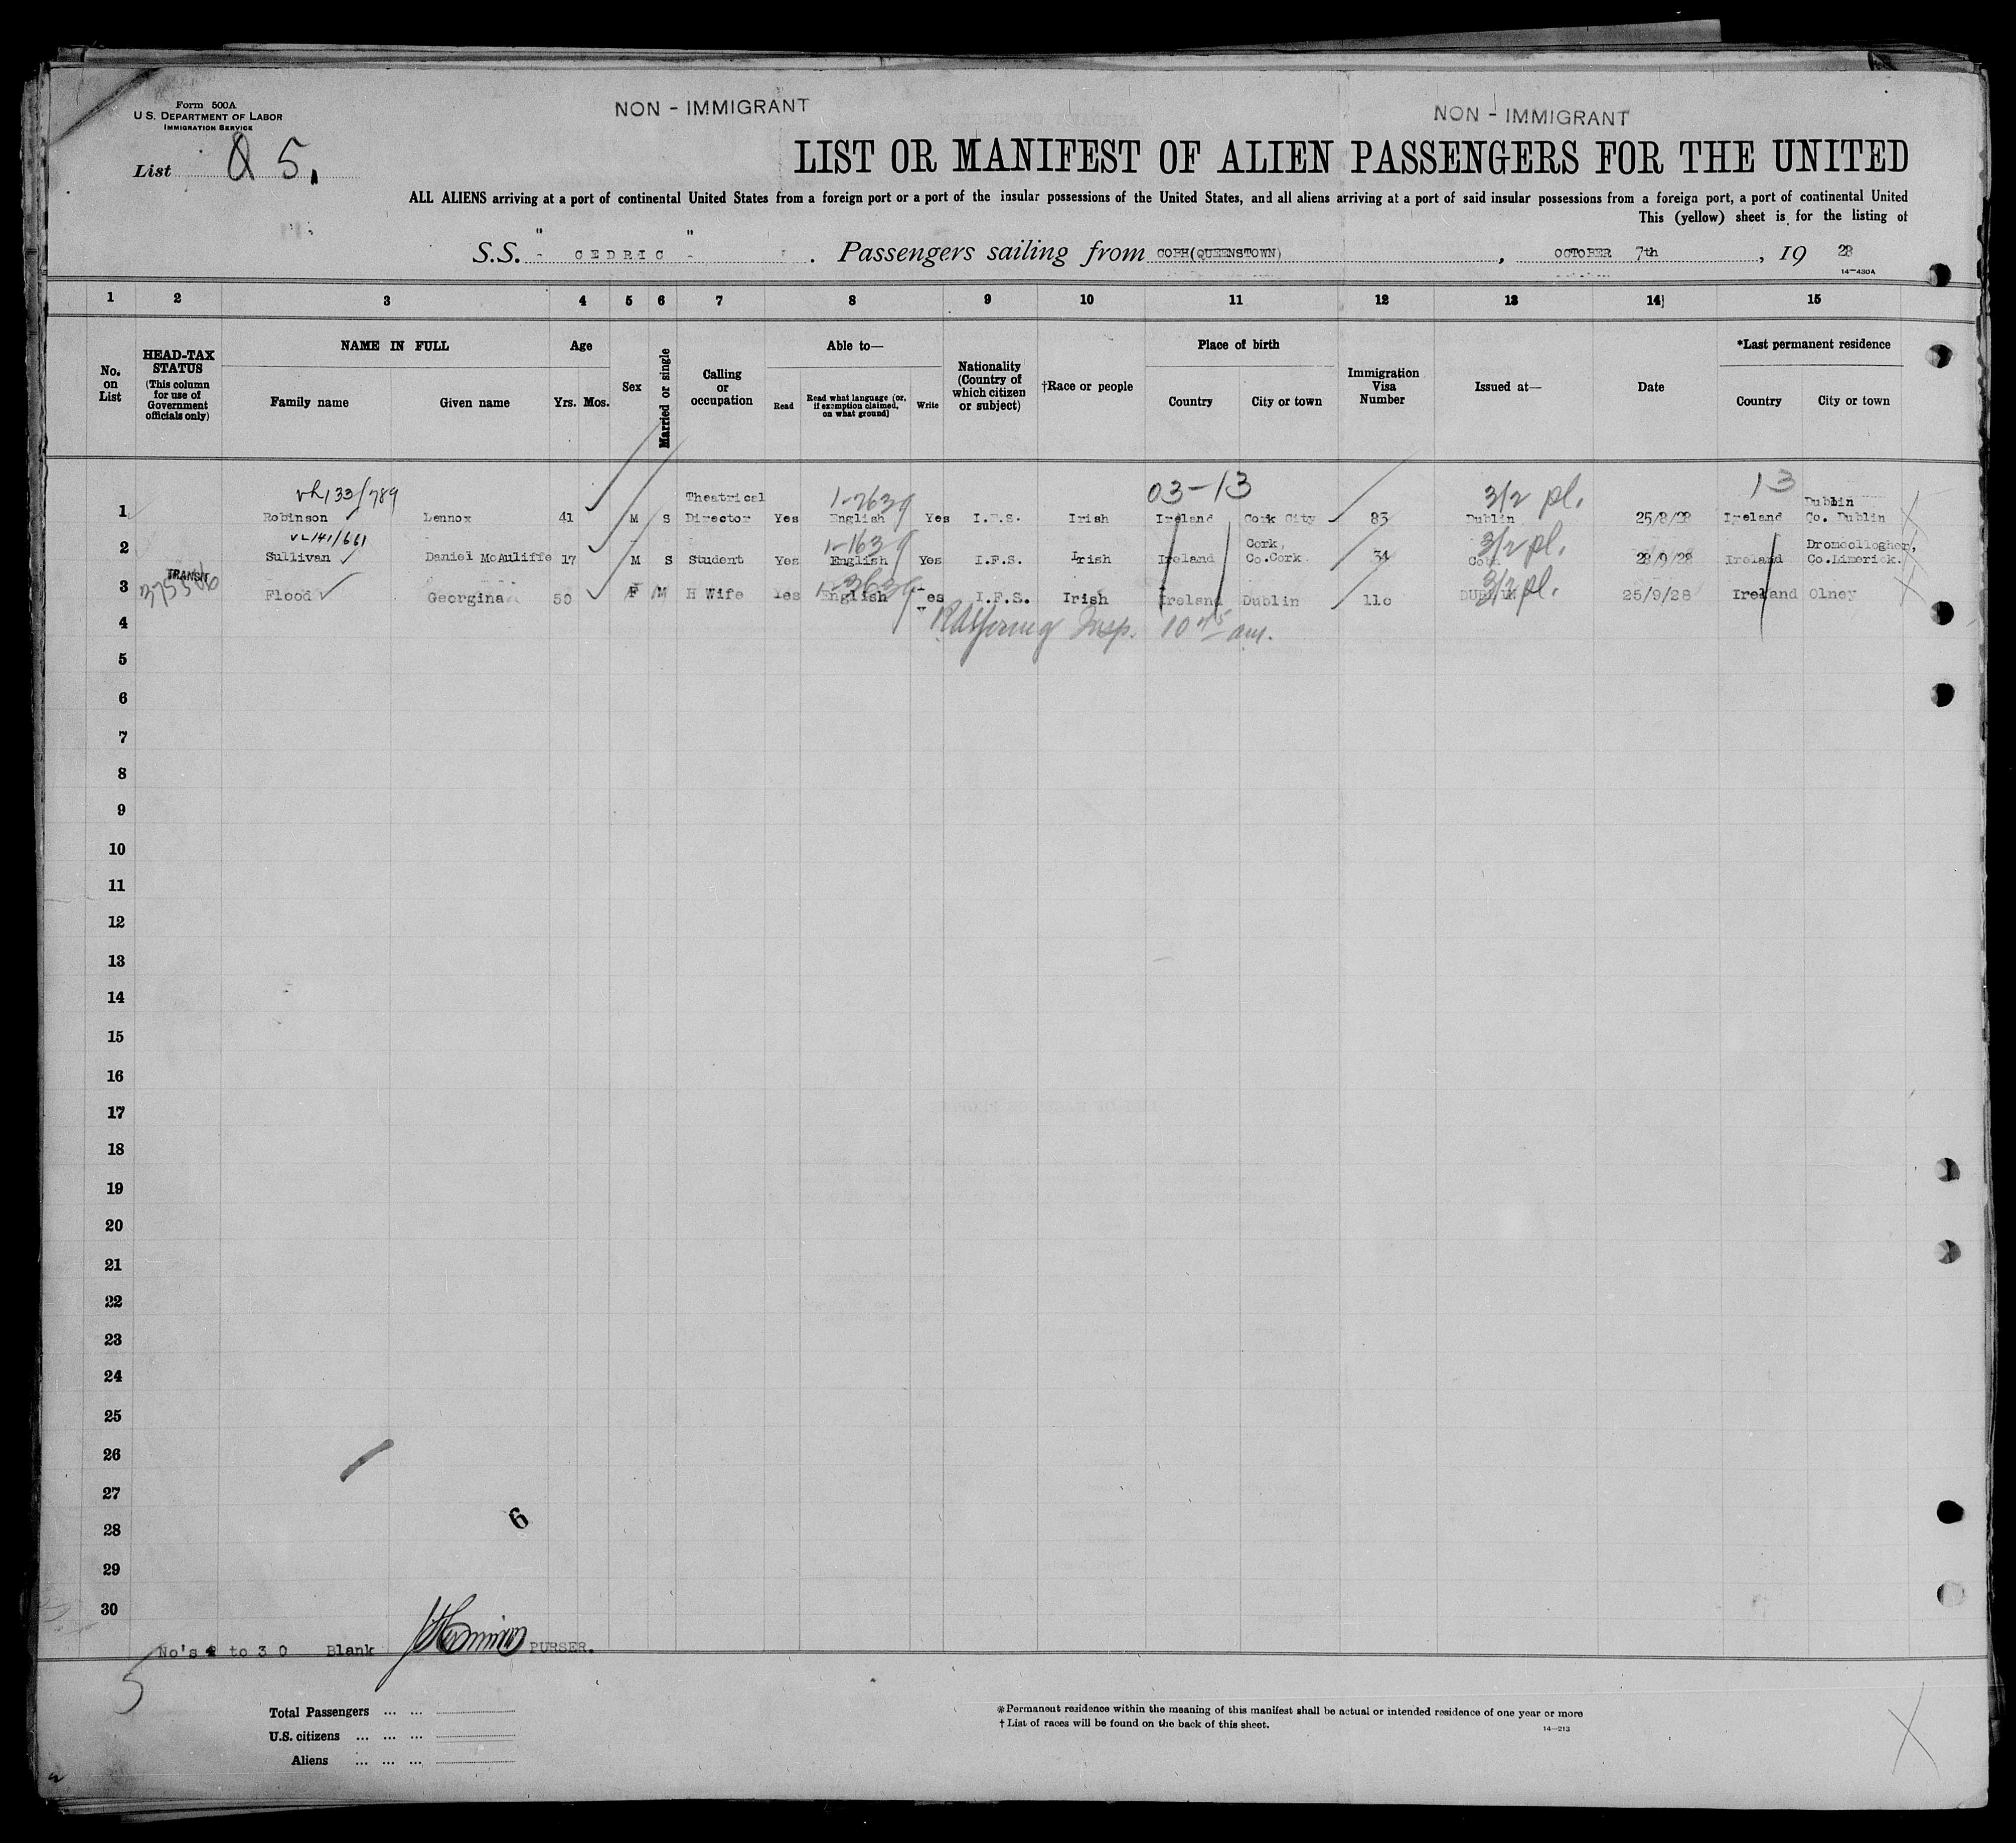 Form 500A
U.S. DEPARTMENT OF LABOR
IMMIGRATION SERVICE
NON - IMMIGRANT
NON - IMMIGRANT
List 5.
LIST OR MANIFEST OF ALIEN PASSENGERS FOR THE UNITED
ALL ALIENS arriving at a port of continental United States from a foreign port or a port of the insular possessions of the United States, and all aliens arriving at a port of said insular possessions from a foreign port, a port of continental United
This (yellow) sheet is for the listing of
S.S. " CEDRIC " . Passengers sailing from COBH(QUEENSTOWN) , OCTOBER 7th , 19 28
14-430A
1 2 3 4 5 6 7 8 9 10 11 12 13 14 15
No. on List
HEAD-TAX STATUS (This column for use of Government officials only)
NAME IN FULL
Family name
Given name
Age
Yrs. Mos.
Sex
Married or single
Calling or occupation
Able to—
Read
Read what language (or, if exemption claimed, on what ground)
Write
Nationality (Country of which citizen or subject)
†Race or people
Place of birth
Country
City or town
Immigration Visa Number
Issued at—
Date
*Last permanent residence
Country
City or town
133/789 1-2639 03-13 3/2 pl. 13
1 Robinson Lennox 41 M S Theatrical Director Yes English Yes I.F.S. Irish Ireland Cork City 83 Dublin 25/8/28 Ireland Dublin Co. Dublin
141/661 1-1639 3/2 pl.
2 Sullivan Daniel McAuliffe 17 M S Student Yes English Yes I.F.S. Irish Ireland Cork, Co.Cork 34 Cobh 28/9/28 Ireland Dromcollogher, Co.Limerick.
TRANSIT 3/2 pl.
3 Flood Georgina 50 F M H Wife Yes English Yes I.F.S. Irish Ireland Dublin 110 DUBLIN 25/9/28 Ireland Olney
4 Insp. 10 45 am.
5
6
7
8
9
10
11
12
13
14
15
16
17
18
19
20
21
22
23
24
25
26
27
28
6
29
30
No's 4 to 30 Blank PURSER.
5
Total Passengers ... ...
U.S. citizens ... ... ...
Aliens ... ... ...
*Permanent residence within the meaning of this manifest shall be actual or intended residence of one year or more
†List of races will be found on the back of this sheet.
14-213